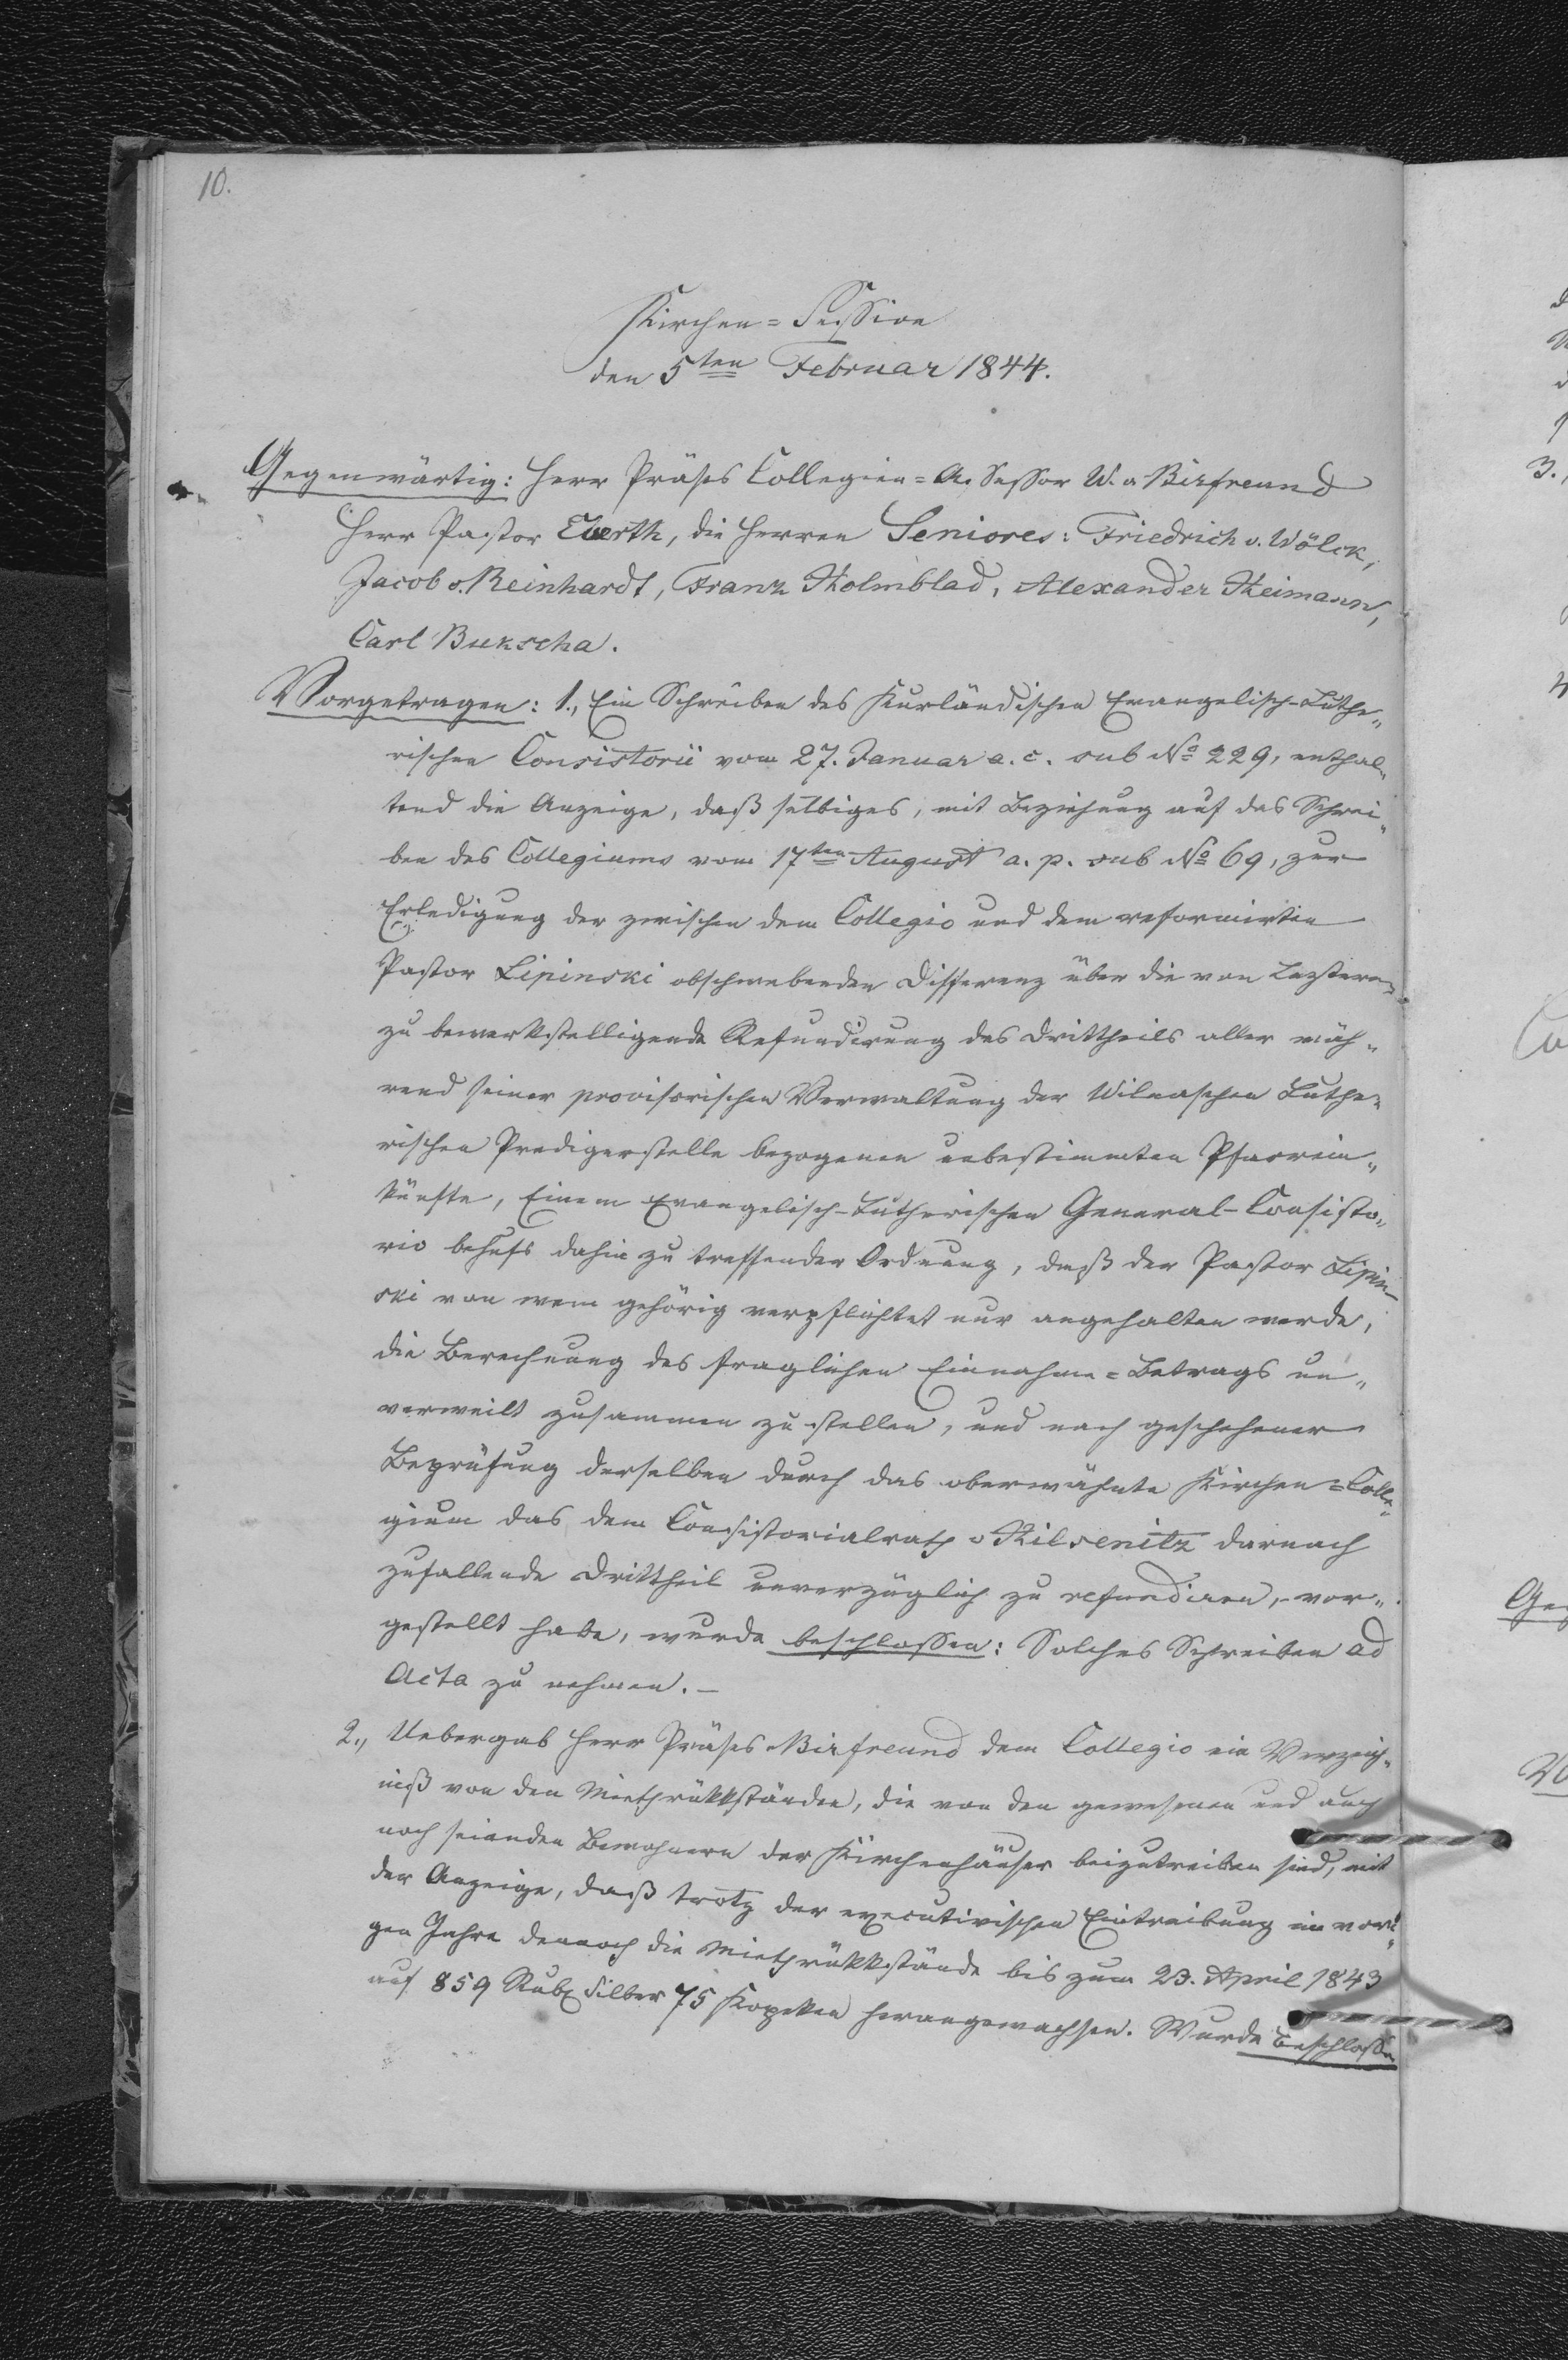 10.
Kirchen=Session
den 5ten Februar 1844.
Gegenwärtig: Herr Präses Collegien=Assessor W. v Birfreund
Herr Pastor Ewerth, die Herren Seniores: Friedrich v. Wölck,
Jacob v. Reinhardt, Franz Holmblad, Alexander Heimann,
Carl Bukscha.
Vorgetragen: 1., Ein Schreiben des Kurländischen Evangelisch-Luthe„
rischen Consistorii vom 27. Januar a. c. sub No 229, enthal„
tend die Anzeige, daß selbiges, mit Beziehung auf das Schrei„
ben des Collegiums vom 17ten August a. p. sub No 69, zur
Erledigung der zwischen dem Collegio und dem reformirten
Pastor Lipinski obschwebenden Differenz über die von Lezterem
zu bewerkstelligende Refundirung des Drittheils aller wäh„
rend seiner provisorischen Verwaltung der Wilnaschen Luthe„
rischen Predigerstelle bezogenen unbestimmten Pfarrein„
künfte, Einem Evangelisch-Lutherischen General-Consisto„
rio behufs dahin zu treffender Ordnung, daß der Pastor Lipin-
ski von wem gehörig verpflichtet und angehalten werde,
die Berechnung des fraglichen Einnahme=Betrags un„
verweilt zusammen zu stellen, und nach geschehener
Beprüfung derselben durch das oberwähnte Kirchen=Colle„
gium das dem Consistorialrath v Nilsenitz darnach
zufallende Drittheil unverzüglich zu refundiren, - vor„
gestellt habe, wurde beschlossen: Solches Schreiben ad
Acta zu nehmen. -
2., Uebergab Herr Präses v Birfreund dem Collegio ein Verzeich„
niß von den Miethrükkständen, die von den gewesenen und auch
noch seienden Bewohnern der Kirchenhäuser beizutreiben sind, mit
der Anzeige, daß trotz der executivischen Eintreibung im vori„
gen Jahre dennoch die Miethrükkstände bis zum 23. April 1843
auf 859 Rub. Silber 75 Kopeken herangewachsen. Wurde beschlossen